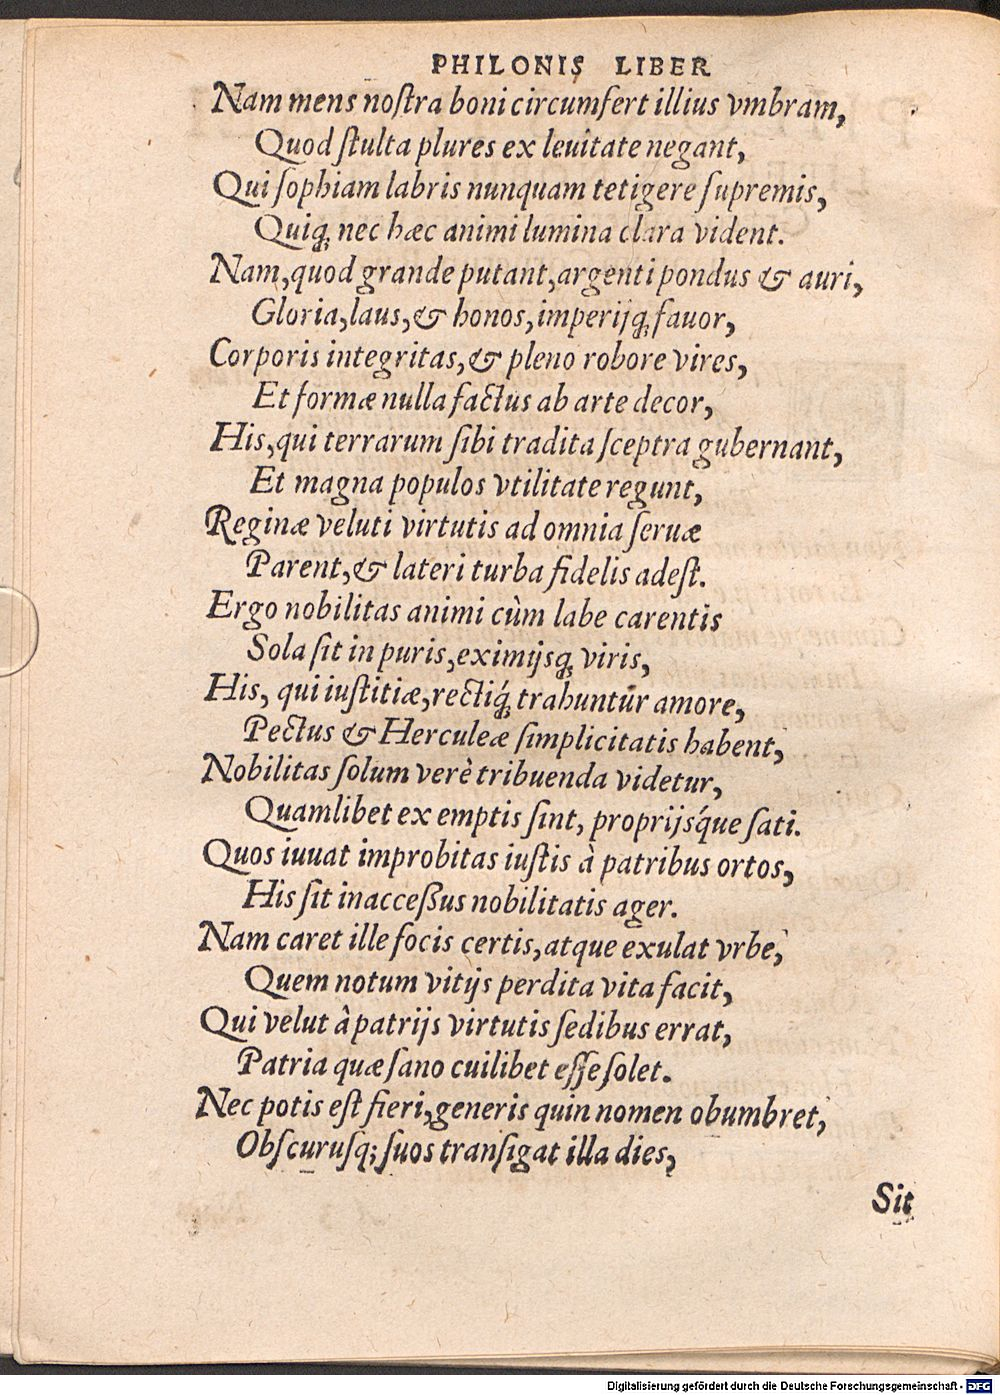 PHILONIS LIBER
Nam mens noſtra boni circumfert illius vmbram,
Quod ſtulta plures ex leuitate negant,
Qui ſophiam labris nunquam tetigere ſupremis,
Quiq; nec hæc animi lumina clara vident.
Nam, quod grande putant, argenti pondus & auri,
Gloria, laus, & honos, imperijq; fauor,
Corporis integritas, & pleno robore vires,
Et formæ nulla factus ab arte decor,
His, qui terrarum ſibi tradita ſceptra gubernant,
Et magna populos vtilitate regunt,
Reginæ veluti virtutis ad omnia ſeruæ
Parent, & lateri turba fidelis adeſt.
Ergo nobilitas animi cùm labe carentis
Sola ſit in puris, eximijsq; viris,
His, qui iuſtitiæ, rectiq́; trahuntur amore,
Pectus & Herculeæ ſimplicitatis habent,
Nobilitas ſolum verè tribuenda videtur,
Quamlibet ex emptis ſint, proprijsq́ue ſati.
Quos iuuat improbitas iuſtis à patribus ortos,
His ſit inacceßus nobilitatis ager.
Nam caret ille focis certis, atque exulat vrbe,
Quem notum vitijs perdita vita facit,
Qui velut â patrijs virtutis ſedibus errat,
Patria quæ ſano cuilibet eſſe ſolet.
Nec potis eſt fieri, generis quin nomen obumbret,
Obſcuruſq; ſuos tranſigat illa dies,
Sit
Digitalisierung gefördert durch die Deutsche Forschungsgemeinschaft - DFG